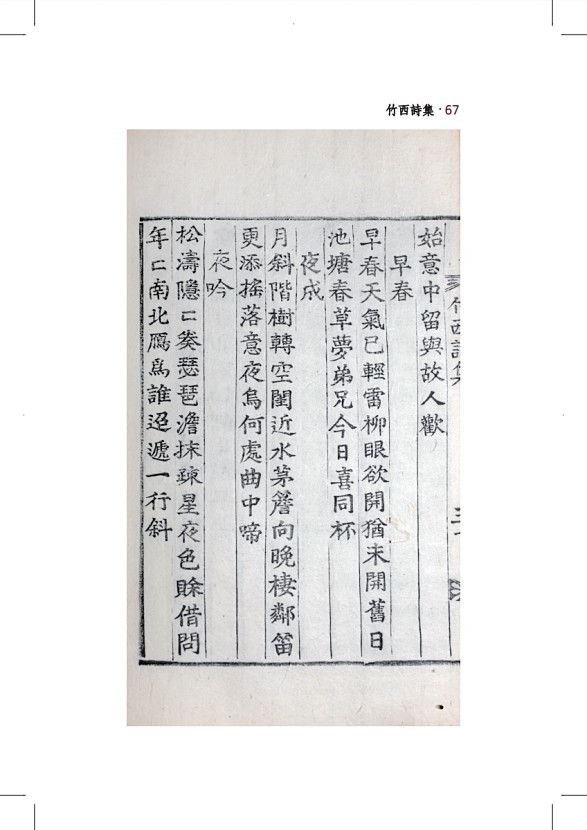 竹西詩集 · 67
竹西詩集
始意中留與故人歡
早春
早春天氣已輕雷柳眼欲開猶未開舊日
池塘春草夢弟兄今日喜同杯
夜成
月斜階樹轉空閨近水茅簷向晩棲鄰笛
更添搖落意夜烏何處曲中啼
夜吟
松濤隱〻奏瑟琶澹抹疎星夜色賖借問
年〻南北鴈爲誰迢遞一行斜